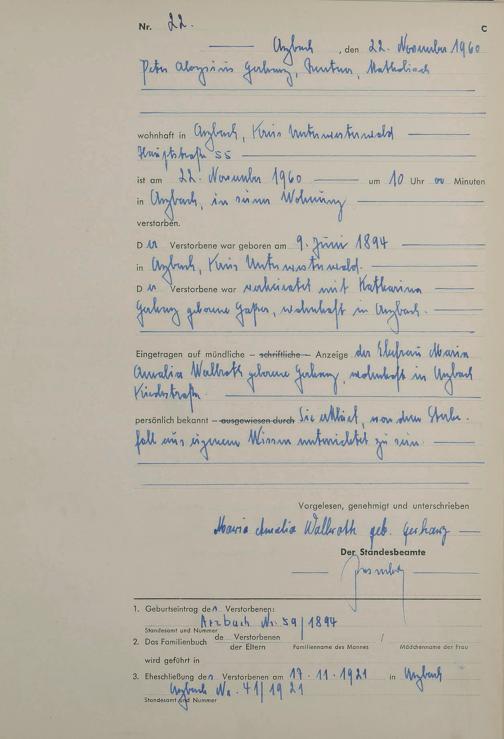 Nr. 22. C
Arzbach, den 22. November 1960
Peter Aloysius Gerharz, Rentner, Katholisch
wohnhaft in Arzbach, Kreis Unterwesterwald
Hauptstraße 55
ist am 22. November 1960 um 10 Uhr 00 Minuten
in Arzbach, in seiner Wohnung
verstorben.
Der Verstorbene war geboren am 9. Juni 1894
in Arzbach, Kreis Unterwesterwald.
Der Verstorbene war verheiratet mit Katharina
Gerharz geborene Gasser, wohnhaft in Arzbach.
Eingetragen auf mündliche – schriftliche – Anzeige der Ehefrau Maria
Amalia Wallroth geborene Gerharz, wohnhaft in Arzbach
Kirchstraße
persönlich bekannt – ausgewiesen durch Sie erklärt, von dem Sterbe-
fall aus eigenem Wissen unterrichtet zu sein.
Vorgelesen, genehmigt und unterschrieben
Maria Amalia Wallroth geb. Gerharz
Der Standesbeamte
1. Geburtseintrag des Verstorbenen:
Arzbach Nr. 59/1894
Standesamt und Nummer
2. Das Familienbuch de Verstorbenen /
der Eltern Familienname des Mannes Mädchenname der Frau
wird geführt in
3. Eheschließung des Verstorbenen am 17.11.1921 in Arzbach
Arzbach Nr. 41/1921
Standesamt und Nummer